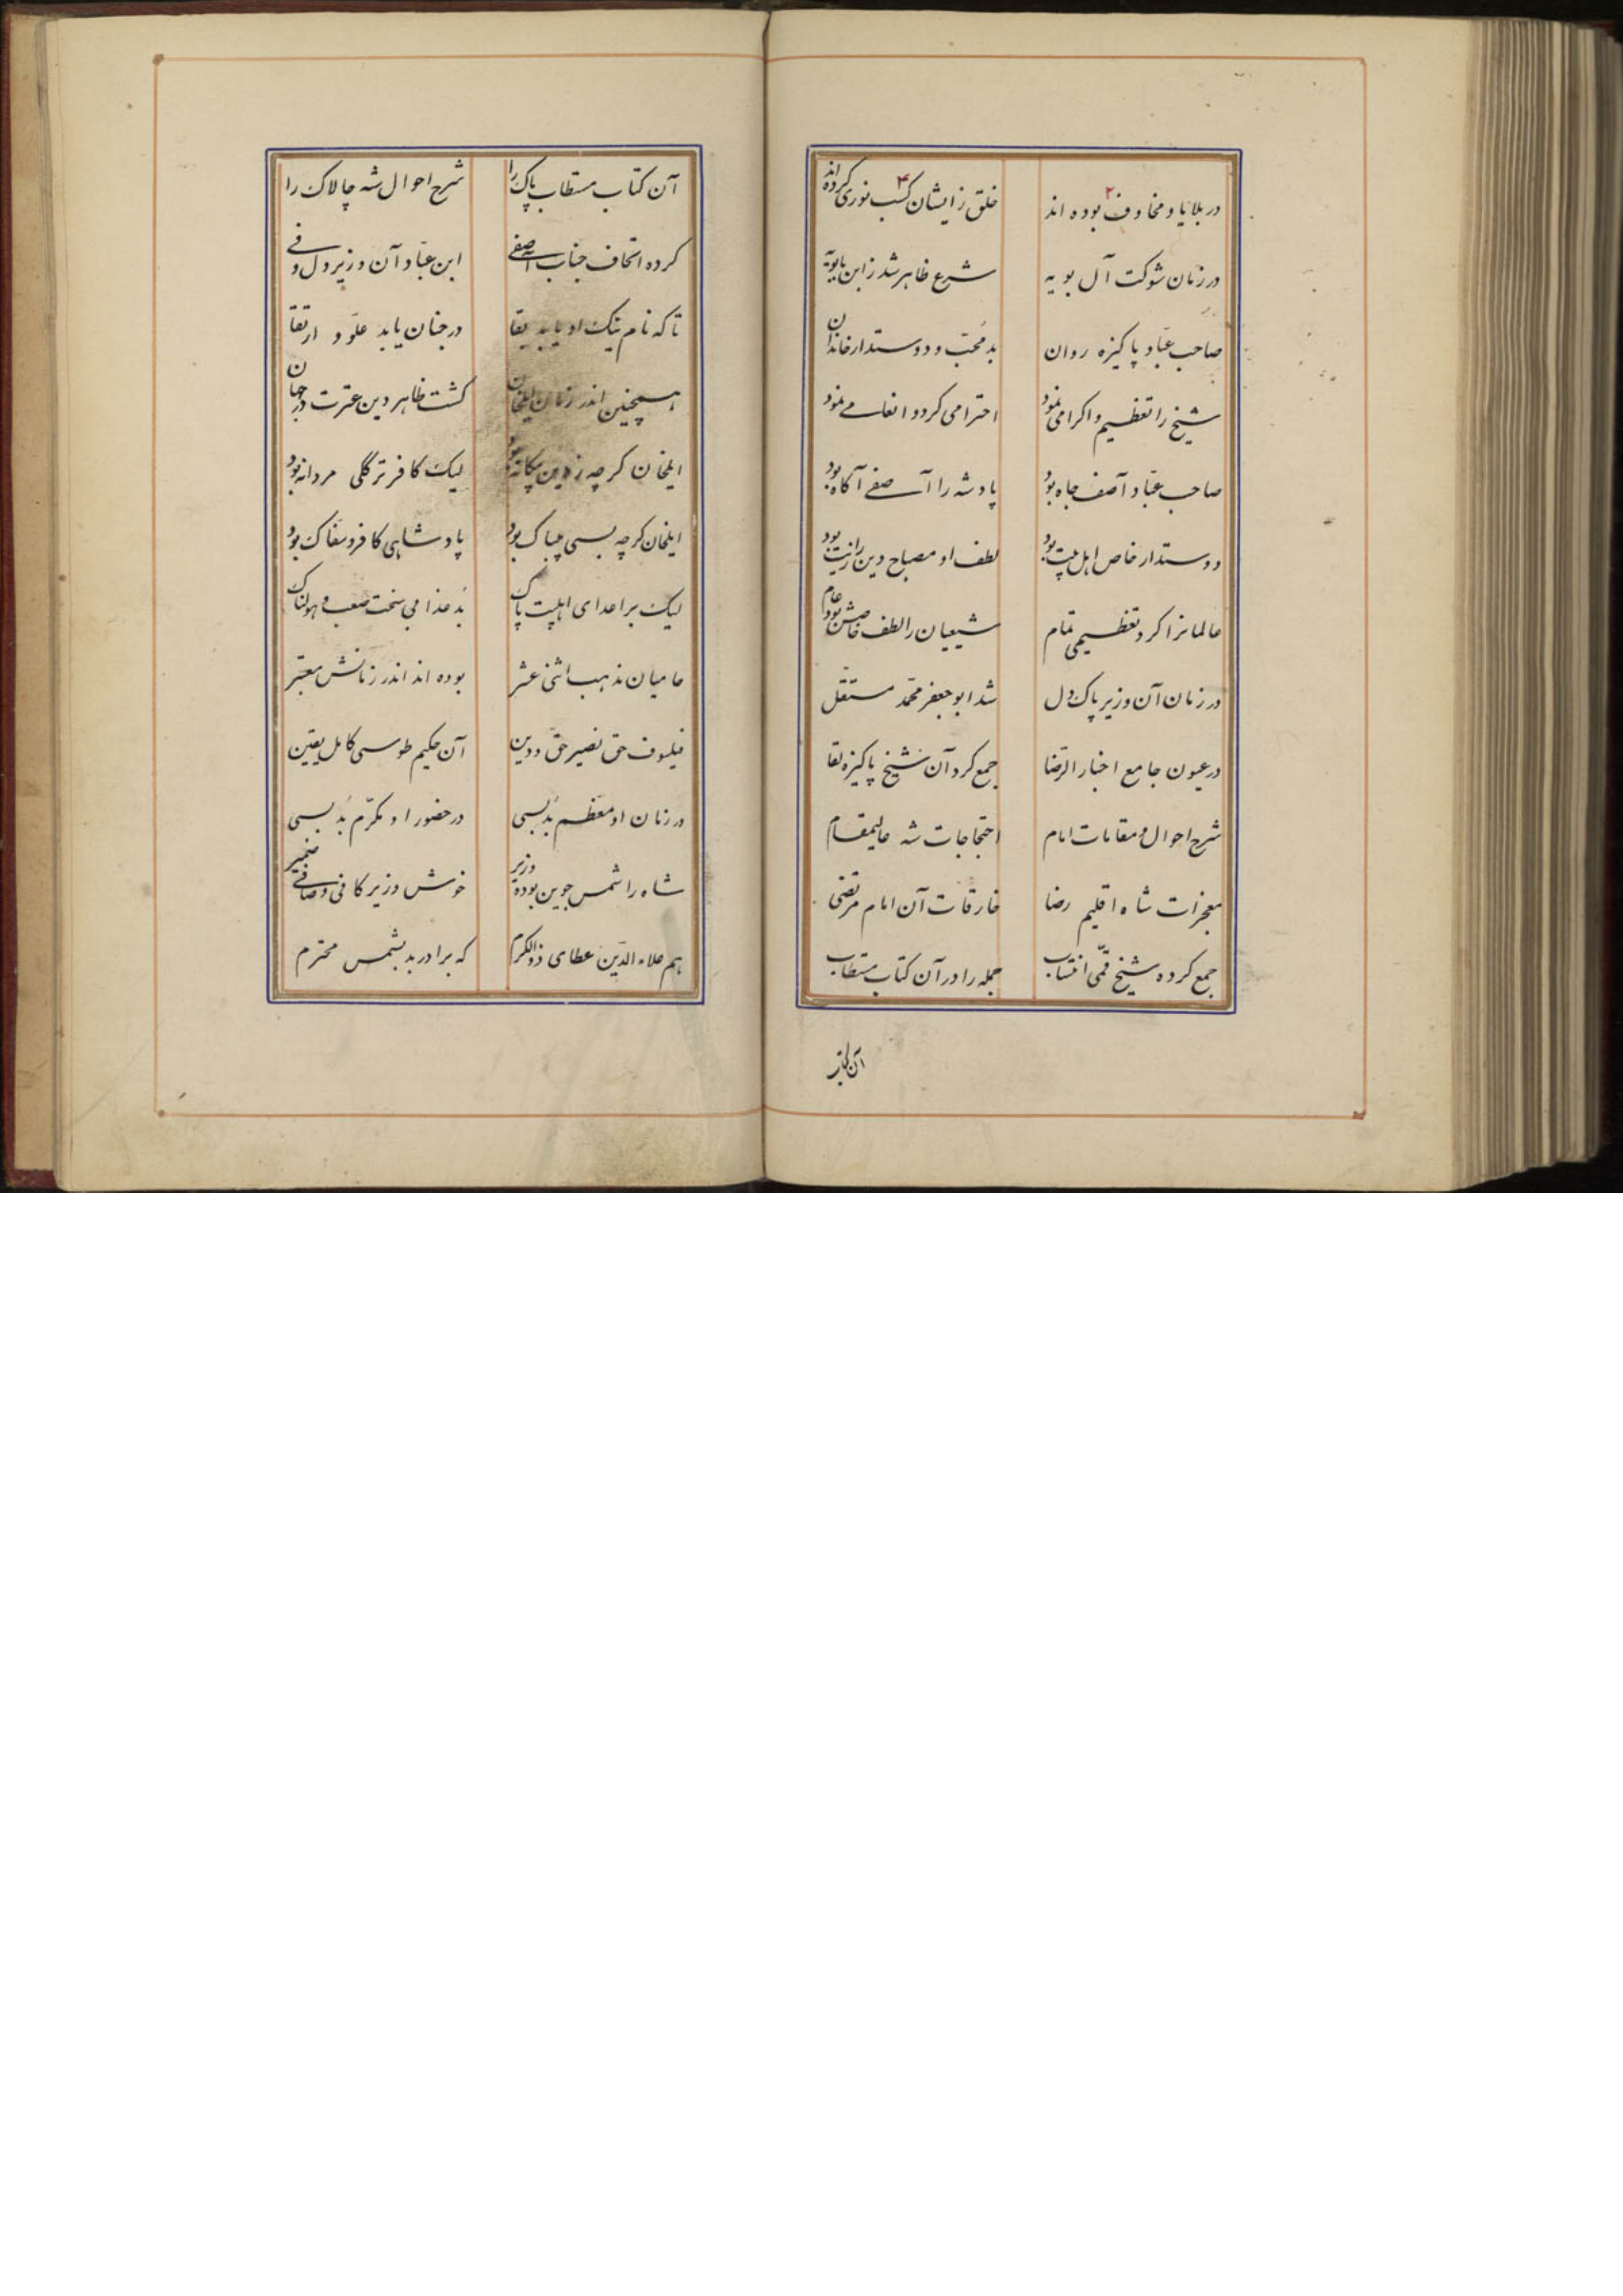 در بلایا و مخاوف بوده اند خلق زایشان کسب نوری کرده اند
۲ ۴
در زمان شوکت آل بویه شرع ظاهر شد ز ابن بابویه
صاحب عبّاد پاکیزه روان بد محبّ و دوستدار خاندان
شیخ را تعظیم و اکرامی نمود احترامی کرد و انعامی نمود
صاحب عبّاد آصف جاه بود پادشه را آصفی آگاه بود
دوستدار خاص اهل بیت بود لطف او مصباح دین را زیت بود
عالمانرا کرد تعظیمی تمام شیعیان را لطف خاصش بود عام
در زمان آن وزیر پاک دل شد ابو جعفر محمّد مستقل
در عیون جامع اخبار الرّضا جمع کرد آن شیخ پاکیزه لقا
شرح احوال و مقامات امام احتجاجات شه عالیمقام
معجزات شاه اقلیم رضا خارقات آن امام مرتضی
جمع کرده شیخ قمّی انتساب جمله را در آن کتاب مستطاب
آن کتاب
آن کتاب مستطاب پاک را شرح احوال شه چالاک را
کرده اتحاف جناب آصفی ابن عبّاد آن وزیر دل وفی
تا که نام نیک او یابد بقا در جنان یابد علوّ و ارتقا
همچنین اندر زمان ایلخان گشت ظاهر دین عترت در جهان
ایلخان گرچه ز دین بیگانه بود لیک کافر ترککی مردانه بود
ایلخان گرچه بسی بیباک بود پادشاهی کافر و سفاک بود
لیک بر اعدای اهلبیت پاک بد عذابی سخت صعب و هولناک
حامیان مذهب اثنی عشر بوده اند اندر زمانش معتبر
فیلسوف حق نصیر حقّ و دین آن حکیم طوسی کامل یقین
در زمان او معظّم بد بسی در حضور او مکرّم بد بسی
شاه را شمس جوین بوده وزیر خوش وزیر کافی و صافی ضمیر
هم علاء الدّین عطای ذو الکرم که برادر بد بشمس محترم